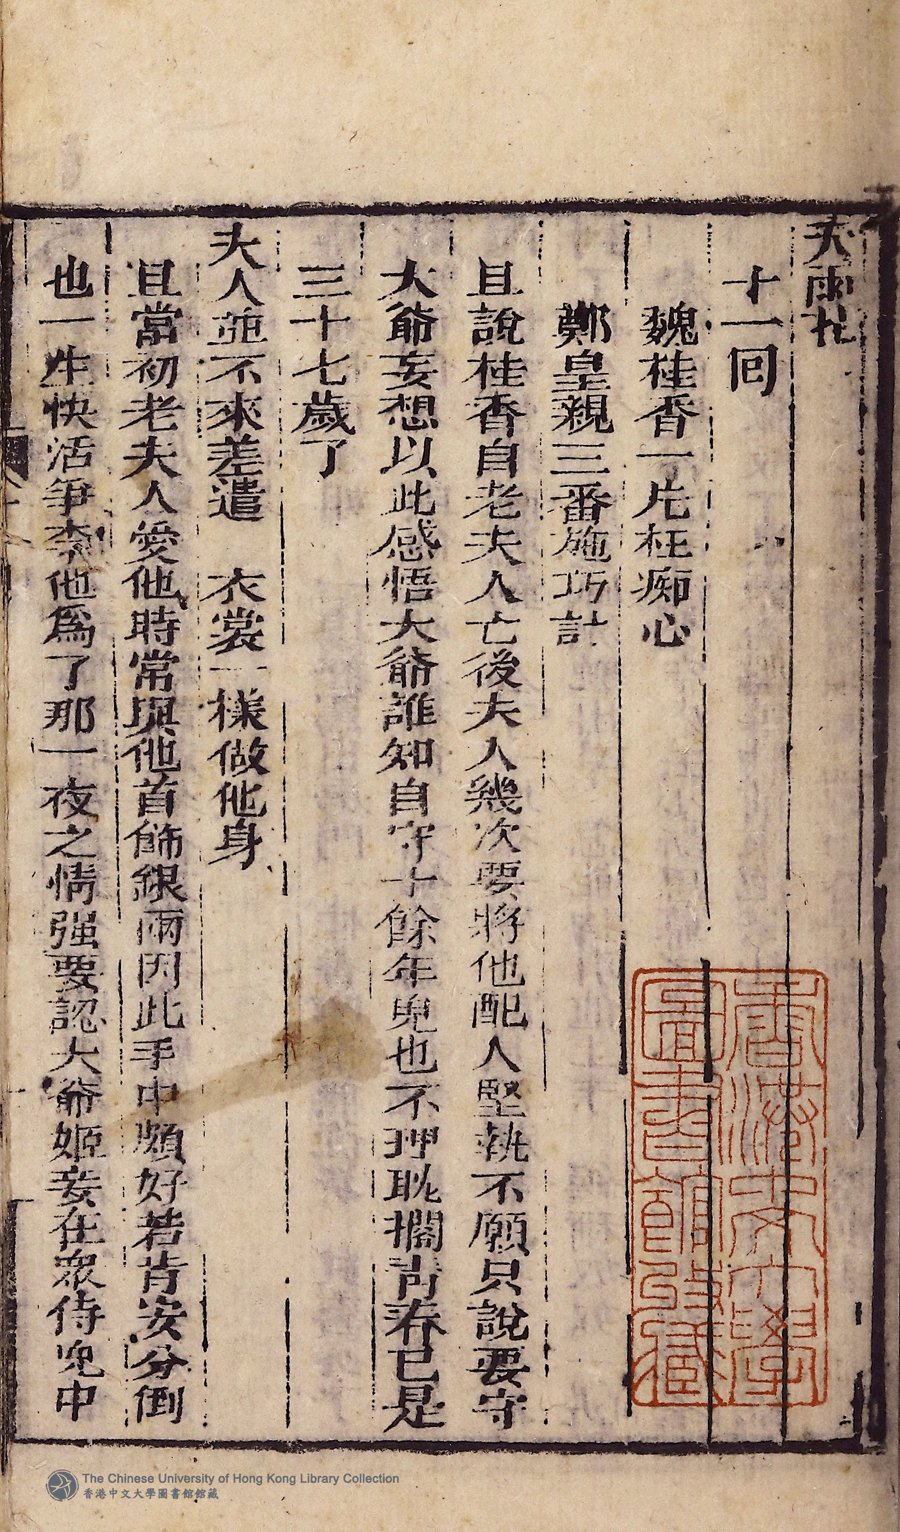 天雨花
十一回
魏桂香一片枉痴心
鄭皇親三番施巧計
且說桂香自老夫人亡後夫人幾次要將他配人堅執不願只說要守
大爺妄想以此感悟大爺誰知自守十餘年鬼也不理耽擱青春已是
三十七歲了
夫人並不來差遣　衣裳一樣做他身
且當初老夫人愛他時常與他首飾銀兩因此手中頗好若肯安分倒
也一生快活爭奈他爲了那一夜之情强要認大爺姬妾在衆侍兒中
香港中文大學
圖書館珍藏
The Chinese University of Hong Kong Library Collection
香港中文大學圖書館館藏